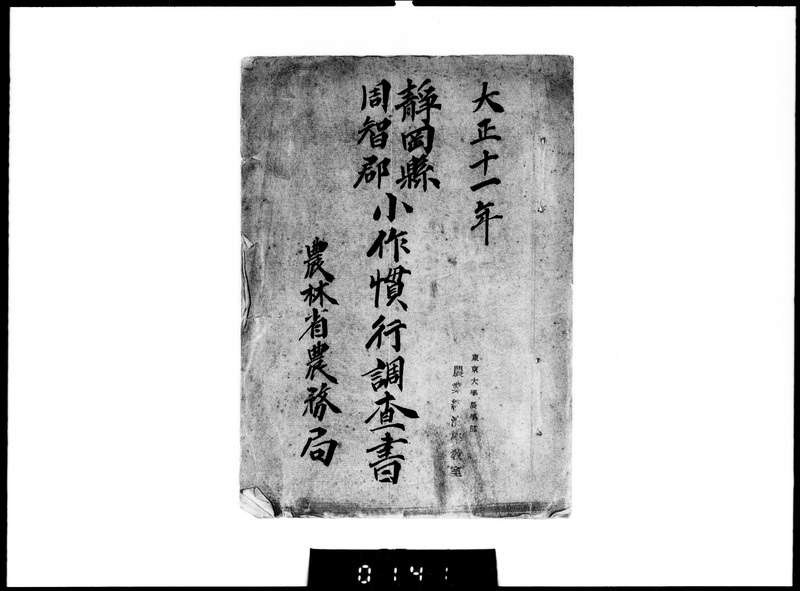 大正十一年
靜岡縣
周智郡
小作慣行調査書
農林省農務局
東京大學農學部
農業経済学教室
0141